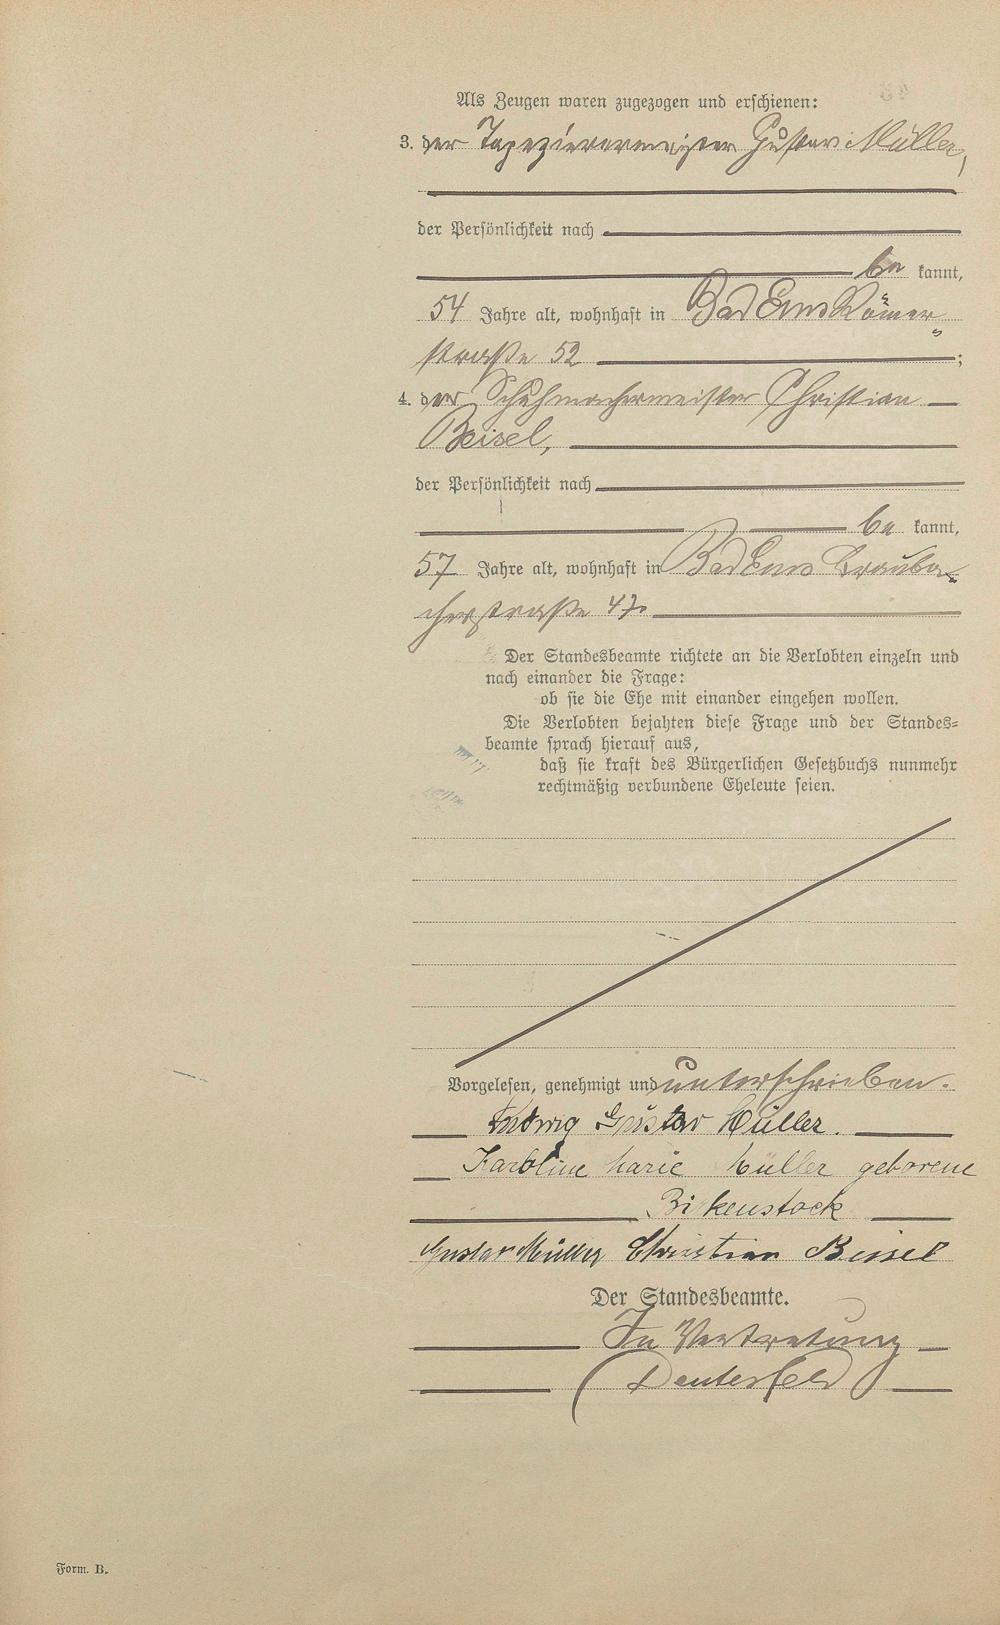 Als Zeugen waren zugezogen und erschienen:
3. der Tapezierermeister Gustav Müller,
der Persönlichkeit nach
be kannt,
54 Jahre alt, wohnhaft in Bad Ems Römer„
straße 52 ;
4. der Schuhmachermeister Christian
Beisel,
der Persönlichkeit nach
be kannt,
57 Jahre alt, wohnhaft in Bad Ems Brauba„
cherstraße 47.
Der Standesbeamte richtete an die Verlobten einzeln und
nach einander die Frage:
ob sie die Ehe mit einander eingehen wollen.
Die Verlobten bejahten diese Frage und der Standes=
beamte sprach hierauf aus,
daß sie kraft des Bürgerlichen Gesetzbuchs nunmehr
rechtmäßig verbundene Eheleute seien.
Vorgelesen, genehmigt und unterschrieben.
Ludwig Gustav Müller.
Karoline Marie Müller geborene
Birkenstock
Gustav Müller Christian Beisel
Der Standesbeamte.
In Vertretung
Form. B.